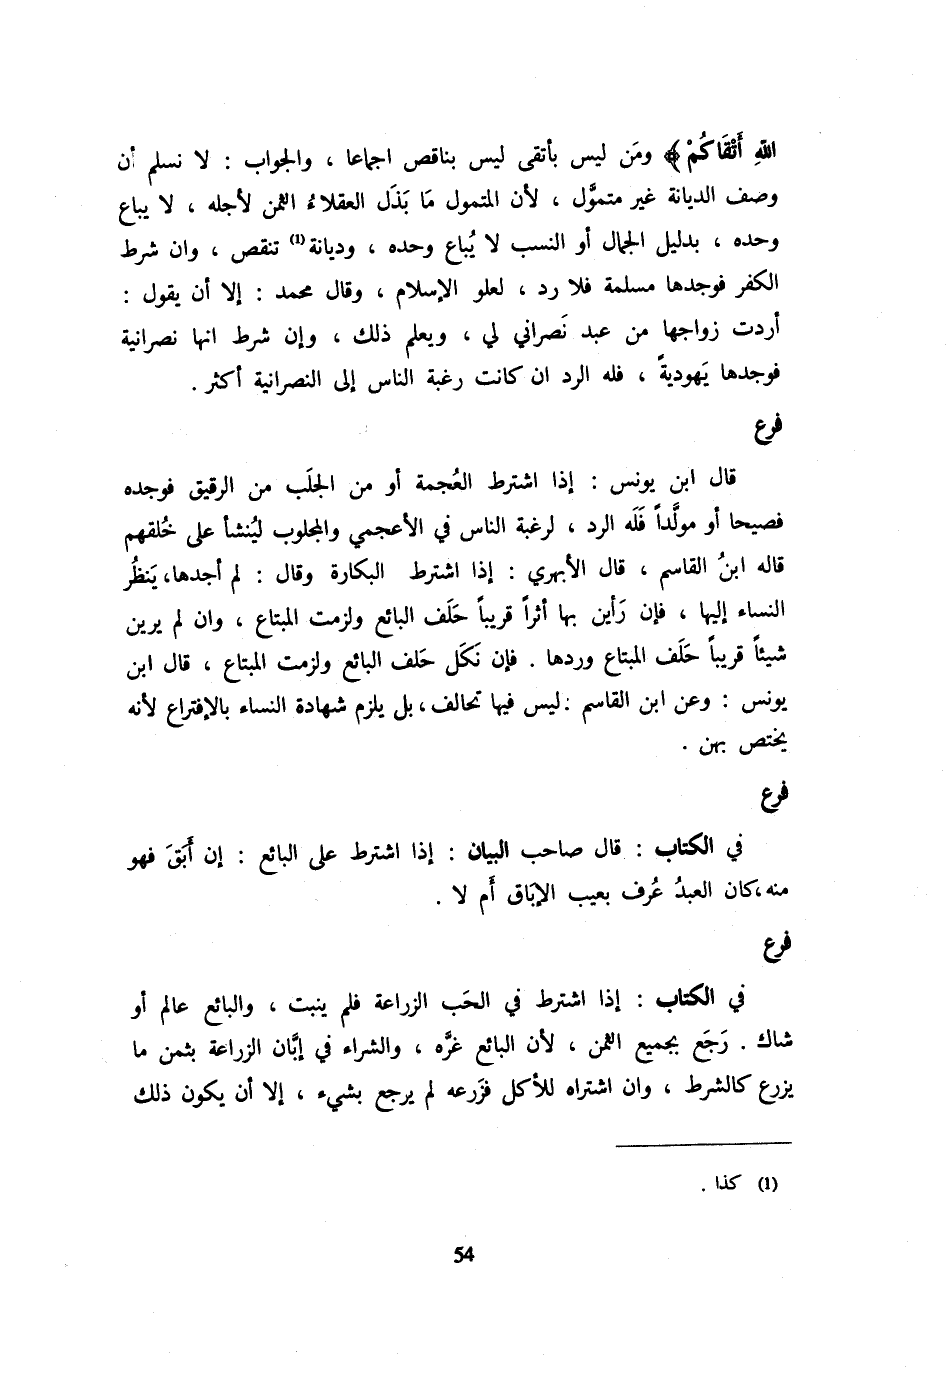 اللهِ أَتْقَاكُمْ﴾ ومَن ليس بأتقى ليس بناقص اجماعا ، والجواب : لا نسلم أن
وصف الديانة غير متموَّل ، لأن المتمول مَا بَذَل العقلاءُ الثمن لأجله ، لا يباع
وحده ، بدليل الجمال أو النسب لا يُباع وحده ، وديانة(1) تنقص ، وان شرط
الكفر فوجدها مسلمة فلا رد ، لعلو الإسلام ، وقال محمد : إلا أن يقول :
أردت زواجها من عبد نَصراني لي ، ويعلم ذلك ، وإن شرط انها نصرانية
فوجدها يَهوديةً ، فله الرد ان كانت رغبة الناس إلى النصرانية أكثر .
فرع
قال ابن يونس : إذا اشترط العُجمة أو من الجلَب من الرقيق فوجده
فصيحا أو مولَّداً فَلَه الرد ، لرغبة الناس في الأعجمي والمجلوب ليُنشأ على خُلقهم
قاله ابنُ القاسم ، قال الأبهري : إذا اشترط البكارة وقال : لم أجدها، يَنظُر
النساء إليها ، فإن رَأين بها أثراً قريباً حَلَف البائع ولزمت المبتاع ، وان لم يرين
شيئاً قريباً حَلَف المبتاع وردها . فإن نَكَل حَلف البائع ولزمت المبتاع ، قال ابن
يونس : وعن ابن القاسم : ليس فيها تحالف ، بل يلزم شهادة النساء بالإفتراع لأنه
يختص بهن .
فرع
في الكتاب : قال صاحب البيان : إذا اشترط على البائع : إن أَبَقَ فهو
منه ، كان العبدُ عُرف بعيب الإبَاق أَم لا .
فرع
في الكتاب : إذا اشترط في الحَب الزراعة فلم ينبت ، والبائع عالم أو
شاك . رَجَع بجميع الثمن ، لأن البائع غرَّه ، والشراء في إبَّان الزراعة بثمن ما
يزرع كالشرط ، وان اشتراه للأكل فزَرعه لم يرجع بشيء ، إلا أن يكون ذلك
(1) كذا .
54